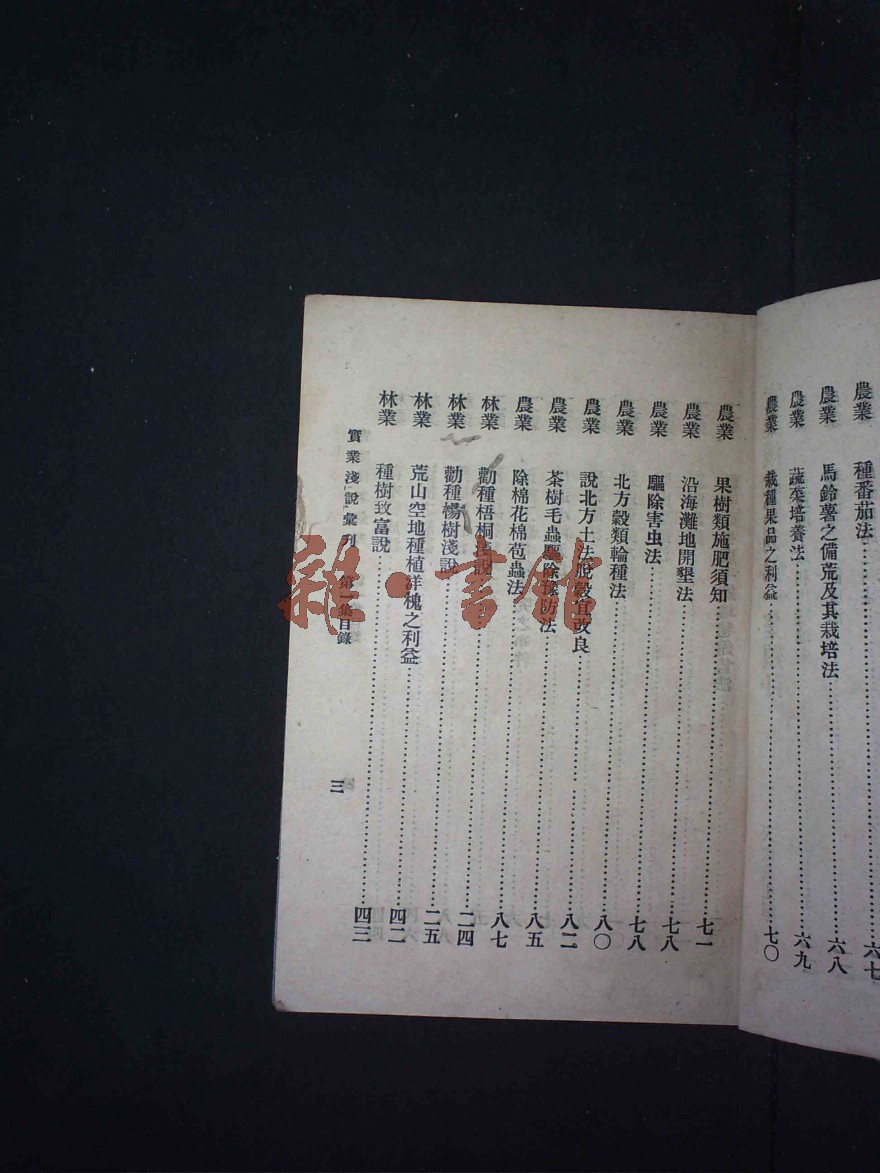 農業　種番茄法……六七
農業　馬鈴薯之備荒及其栽培法……六八
農業　蔬菜培養法……六九
農業　栽種果品之利益……七〇
農業　果樹類施肥須知……七一
農業　沿海灘地開墾法……七八
農業　驅除害虫法……七八
農業　北方穀類輪種法……八〇
農業　說北方土法脫穀宜改良……八二
農業　茶樹毛蟲驅除豫防法……八五
農業　除棉花棉苞蟲法……八七
林業　勸種梧桐淺說……二四
林業　勸種楊樹淺說……二五
林業　荒山空地種植洋槐之利益……四二
林業　種樹致富說……四三
實業淺說彙刊　第一集目錄　三
雜·書館